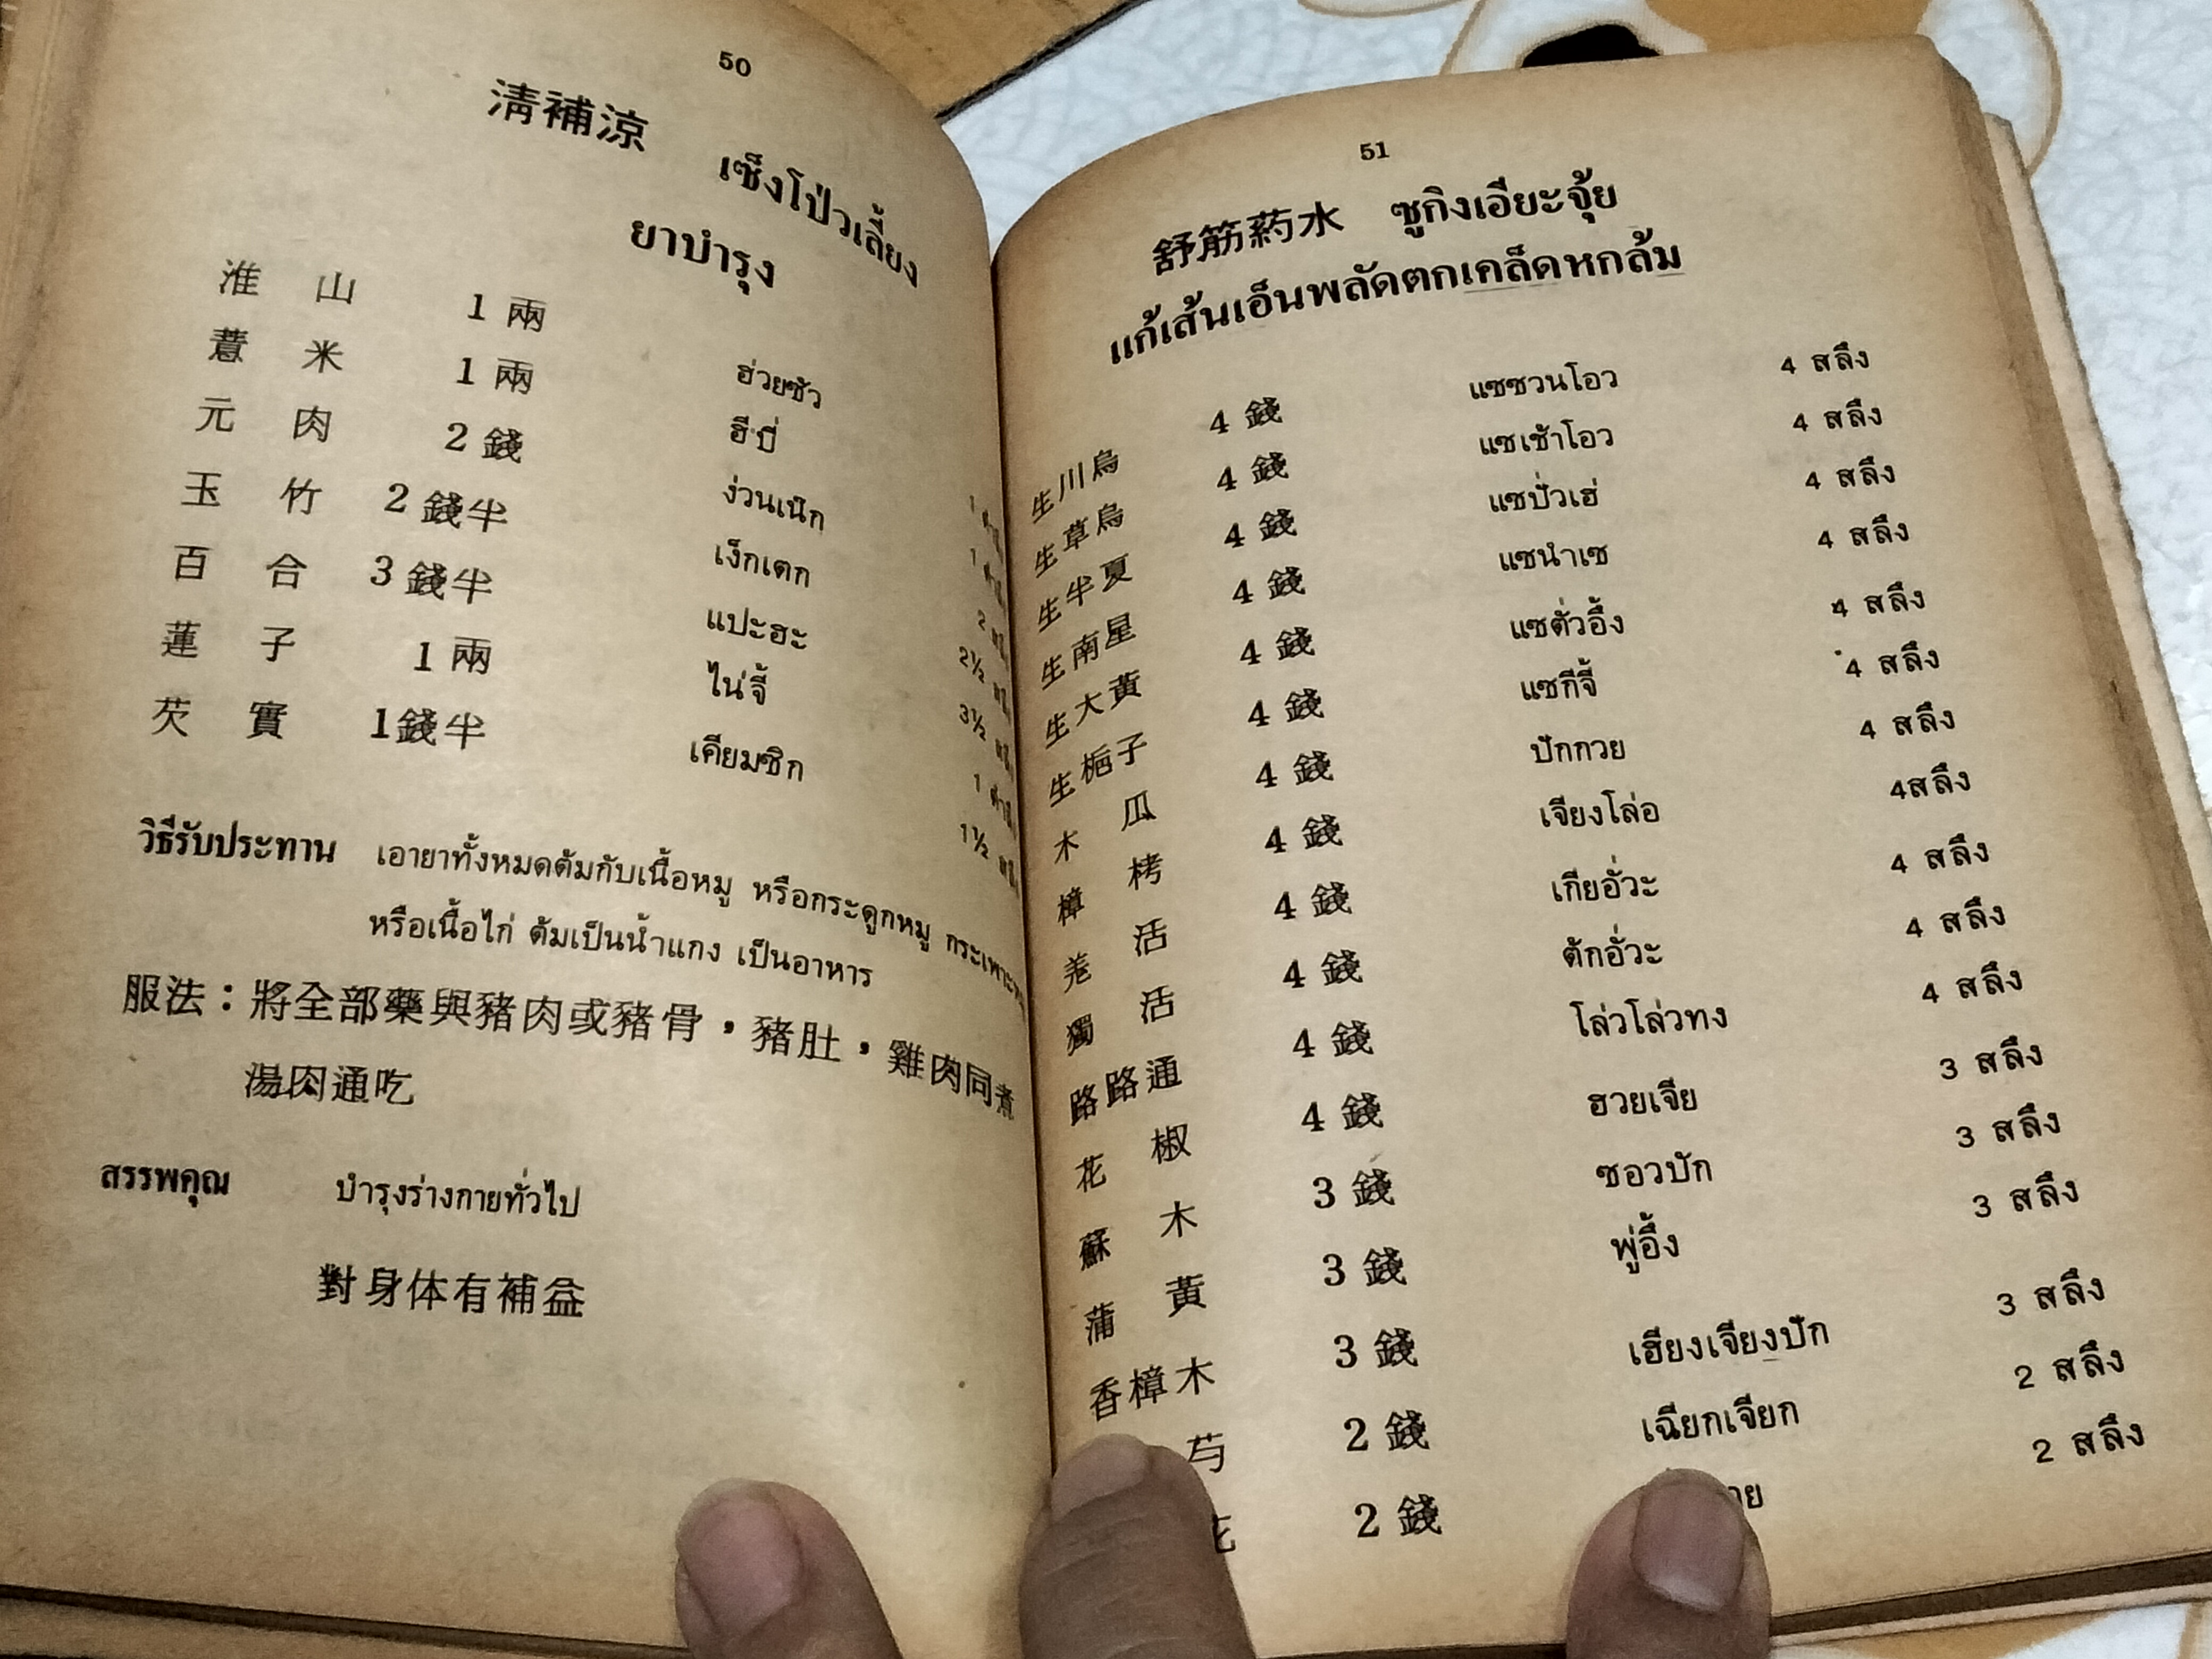 50
清補涼 เซ็งโป่วเลี้ยง
ยาบำรุง
淮山 1 兩 ฮ่วยซัว 1
薏米 1 兩 ฮีบี่ 1
元肉 2 錢 ง่วนเน๊ก 2
玉竹 2 錢半 เง็กเตก 2½
百合 3 錢半 แปะฮะ 3½
蓮子 1 兩 ไน่จี้ 1
芡實 1錢半 เคียมซิก 1½
วิธีรับประทาน เอายาทั้งหมดต้มกับเนื้อหมู หรือกระดูกหมู
หรือเนื้อไก่ ต้มเป็นน้ำแกง เป็นอาหาร
服法：將全部藥與豬肉或豬骨，豬肚，雞肉同煮
湯肉通吃
สรรพคุณ บำรุงร่างกายทั่วไป
對身体有補益
51
舒筋葯水 ซูกิงเอียะจุ้ย
แก้เส้นเอ็นพลัดตกเคล็ดหกล้ม
生川烏 4 錢 แซชวนโอว 4 สลึง
生草烏 4 錢 แซเช้าโอว 4 สลึง
生半夏 4 錢 แซปั่วเฮ่ 4 สลึง
生南星 4 錢 แซนำเซ 4 สลึง
生大黃 4 錢 แซตั่วอึ้ง 4 สลึง
生梔子 4 錢 แซกีจี้ 4 สลึง
木瓜 4 錢 ปักกวย 4 สลึง
樟栲 4 錢 เจียงโล่อ 4สลึง
羗活 4 錢 เกียอั่วะ 4 สลึง
獨活 4 錢 ตักอั่วะ 4 สลึง
路路通 4 錢 โล่วโล่วทง 4 สลึง
花椒 4 錢 ฮวยเจีย 3 สลึง
蘇木 3 錢 ซอวปัก 3 สลึง
蒲黃 3 錢 พู่อึ้ง 3 สลึง
香樟木 3 錢 เฮียงเจียงปัก 3 สลึง
芍 2 錢 เฉียกเจียก 2 สลึง
花 2 錢 2 สลึง